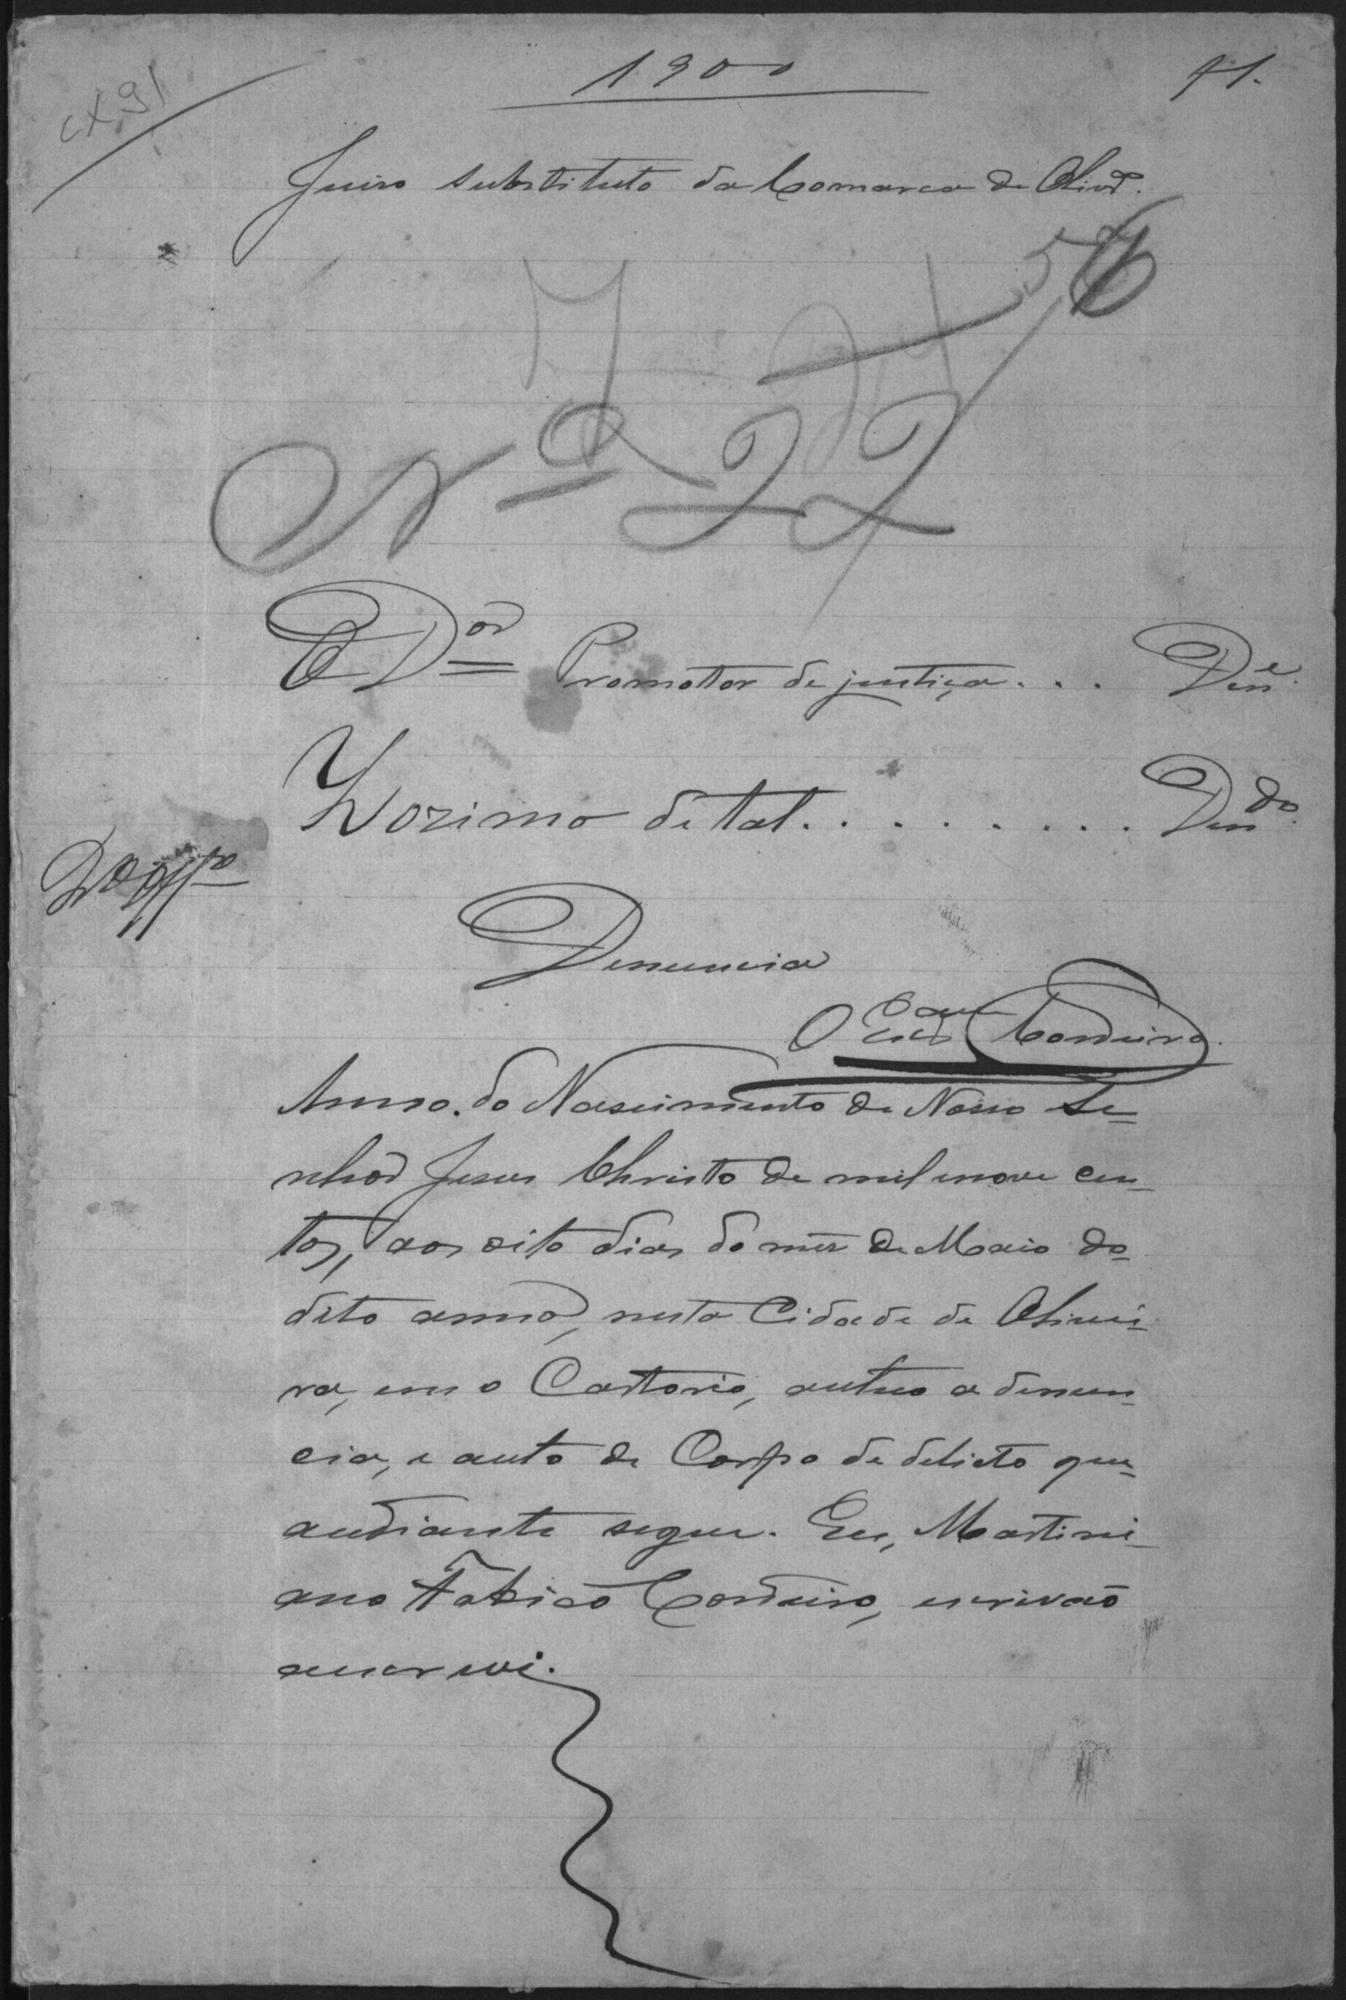 1900
f 1.
CX 91
Juizo substituto da Comarca de Olivrª.
56
Nº 22
O Dor Promottor de justiça... Dene.
Zozimo de tal......... Dendo.
Denuncia
O Escam Cordeiro.
Anno do Nascimento de Nosso Se-
nhor Jesus Christo de mil enove cen-
tos, aos oito dias do mez de Maio do
dito anno, nesta Cidade de Olivei-
ra, em o Cartorio, autuo a denun-
cia, e auto de Corpo de delicto que
audiante segue. Eu, Martini-
ano Fabiaõ Cordeiro, escrivaõ
escrevi.